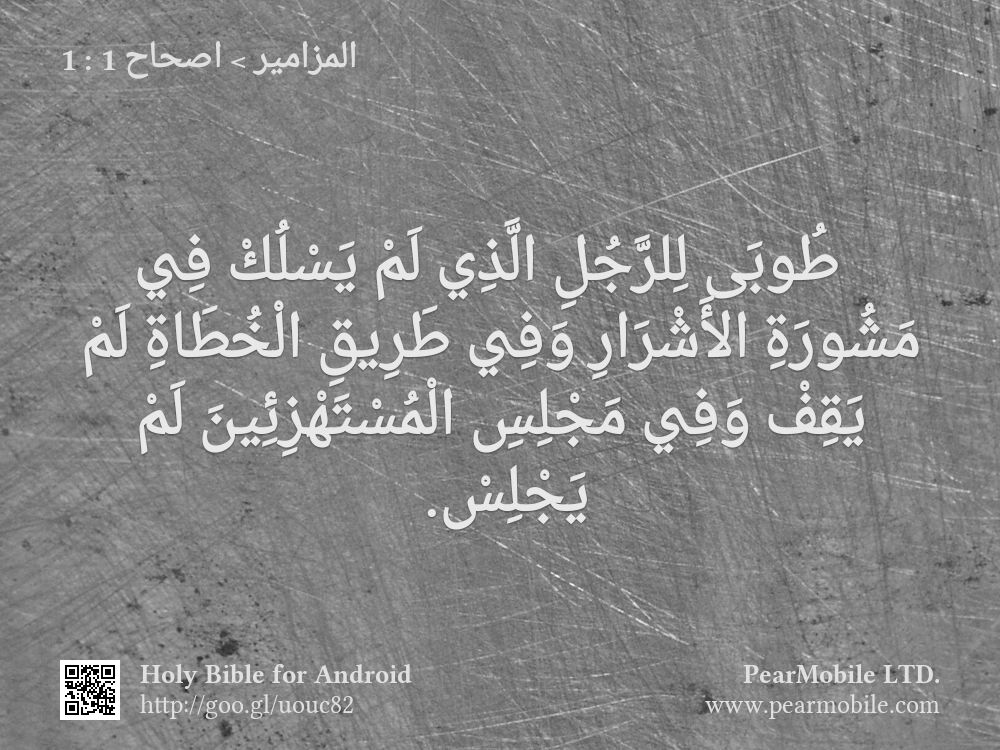 المزامير > اصحاح 1 : 1
طُوبَى لِلرَّجُلِ الَّذِي لَمْ يَسْلُكْ فِي
مَشُورَةِ الأَشْرَارِ وَفِي طَرِيقِ الْخُطَاةِ لَمْ
يَقِفْ وَفِي مَجْلِسِ الْمُسْتَهْزِئِينَ لَمْ
يَجْلِسْ.
Holy Bible for Android
http://goo.gl/uouc82
PearMobile LTD.
www.pearmobile.com